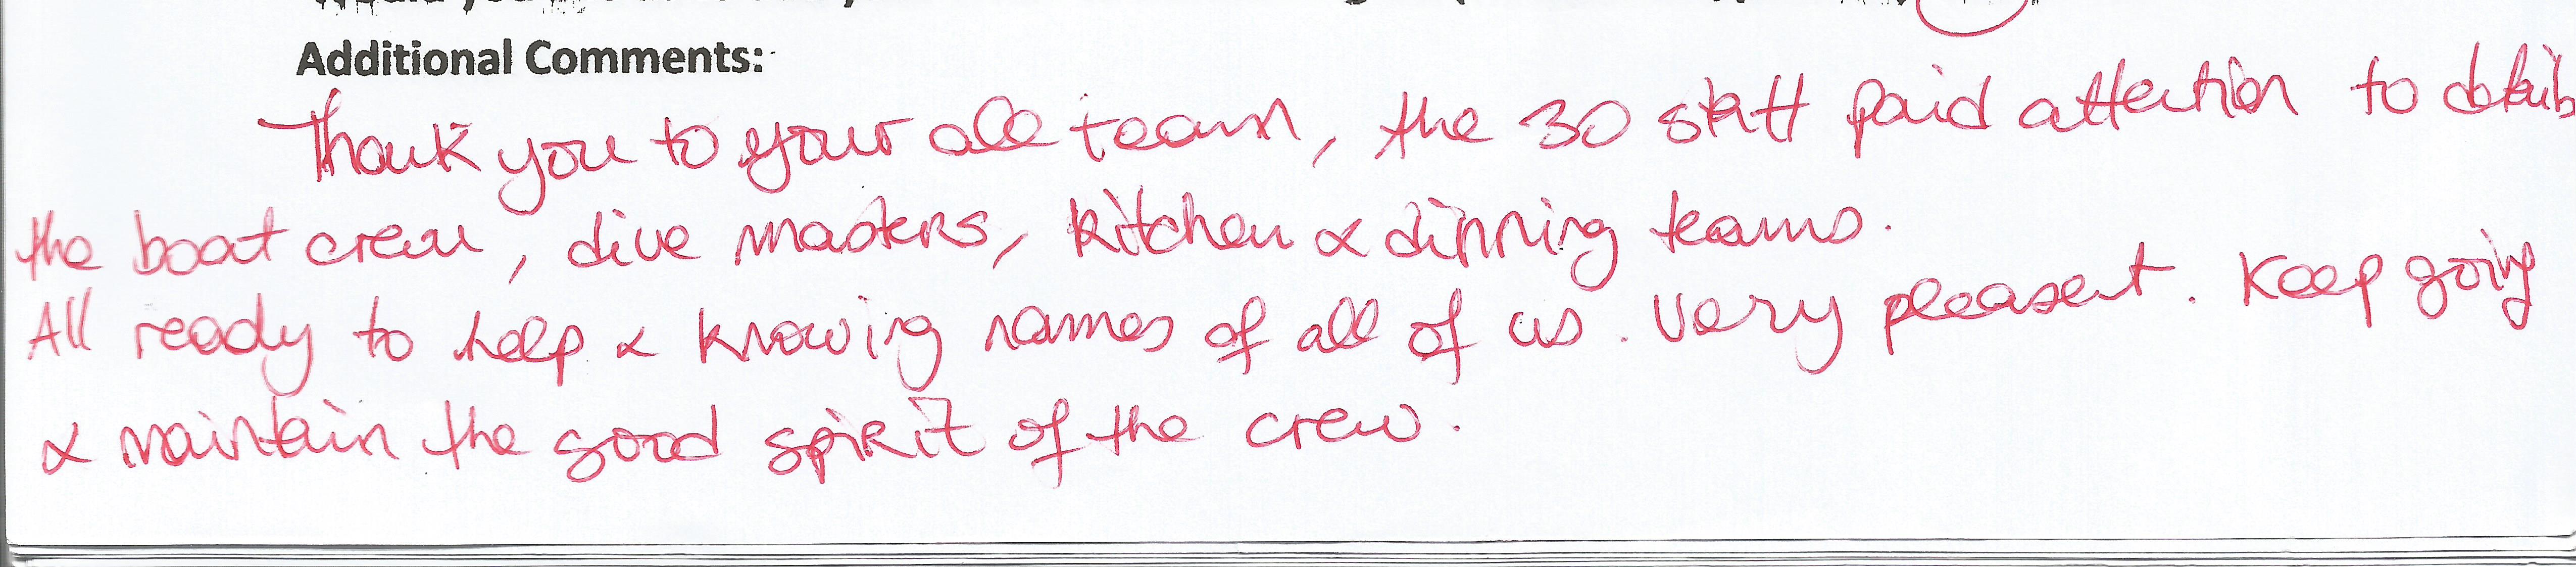 Additional Comments:
Thank you to your all team, the 30 staff paid attention to details
the boat crew, dive masters, kitchen & dinning teams.
All ready to help & knowing names of all of us. Very pleasent. Keep going
& maintain the good spirit of the crew.